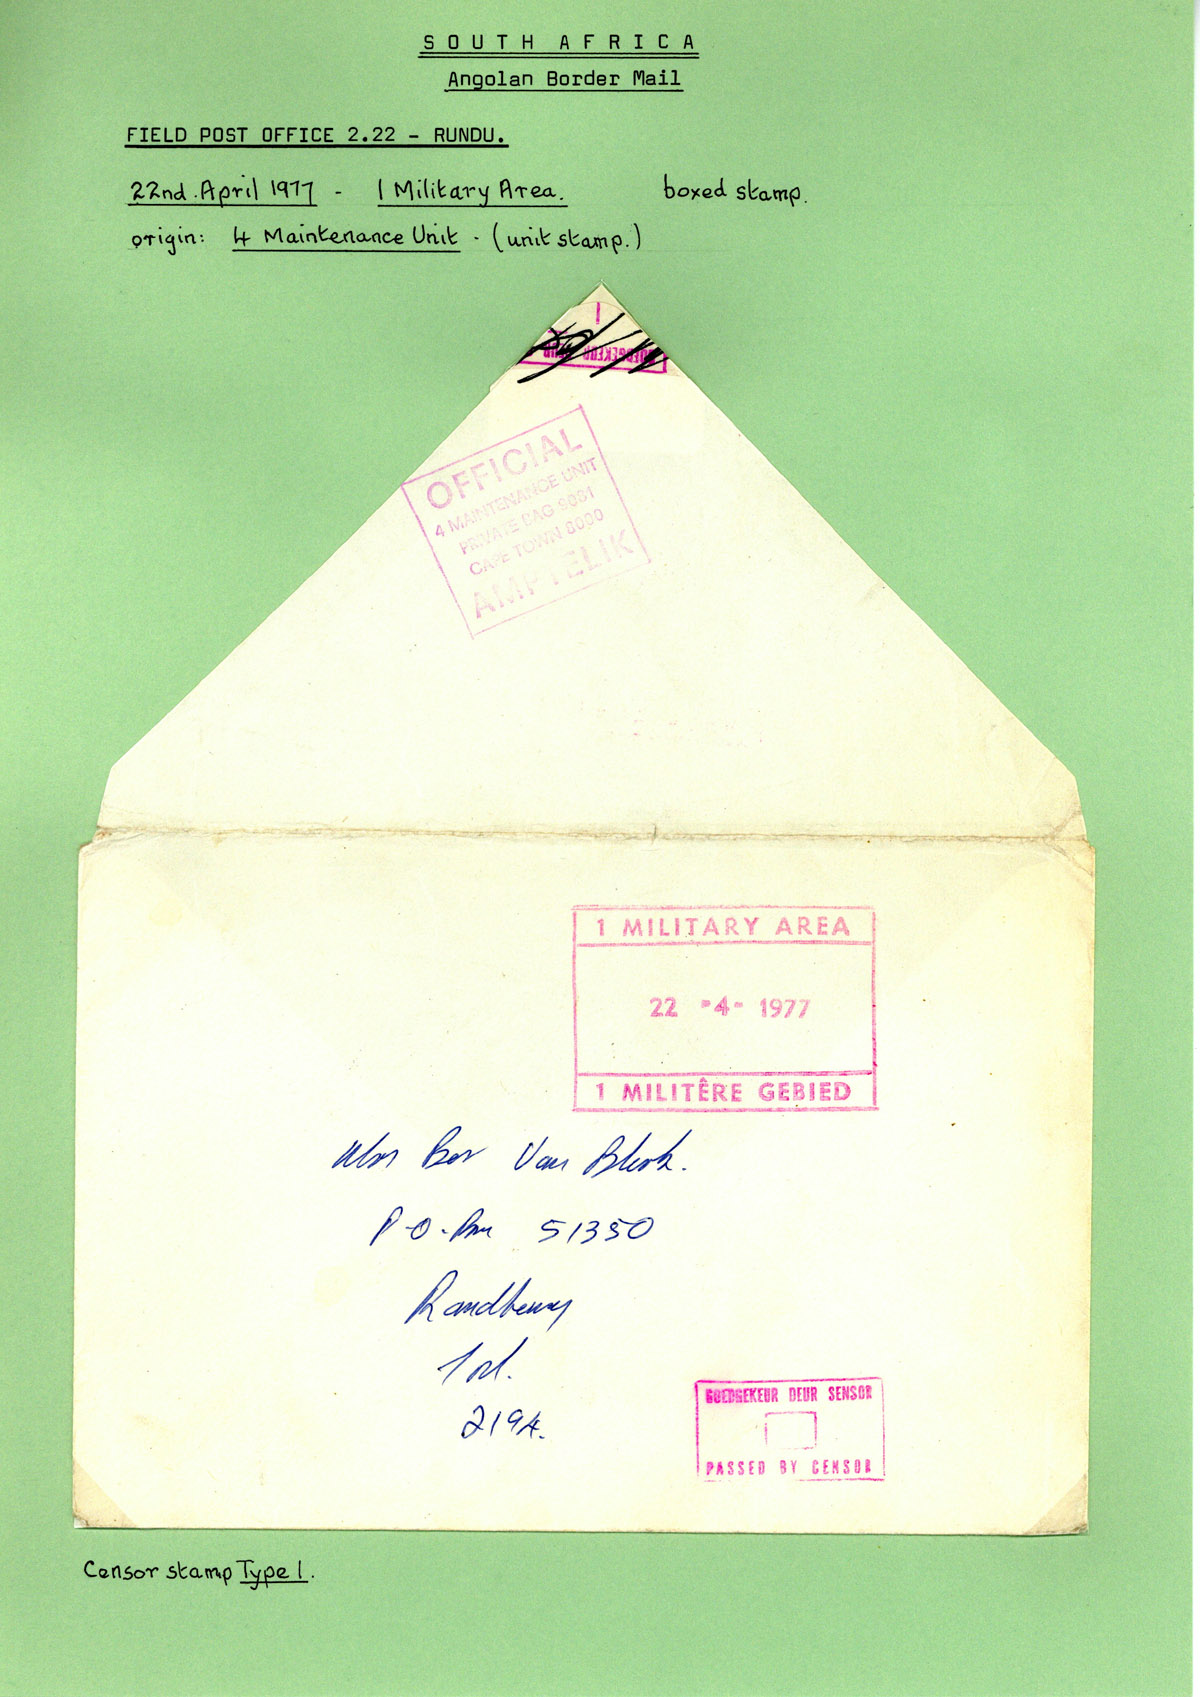 SOUTH AFRICA
Angolan Border Mail
FIELD POST OFFICE 2.22 - RUNDU.
22nd. April 1977 - 1 Military Area. boxed stamp.
origin: 4 Maintenance Unit - (unit stamp.)
GOEDGEKEUR DEUR
OFFICIAL
4 MAINTENANCE UNIT
PRIVATE BAG 9081
CAPE TOWN 8000
AMPTELIK
1 MILITARY AREA
22 -4- 1977
1 MILITÊRE GEBIED
Van Blerk.
P.O. Box 51350
Randburg
2194.
GOEDGEKEUR DEUR SENSOR
PASSED BY CENSOR
Censor stamp Type 1.